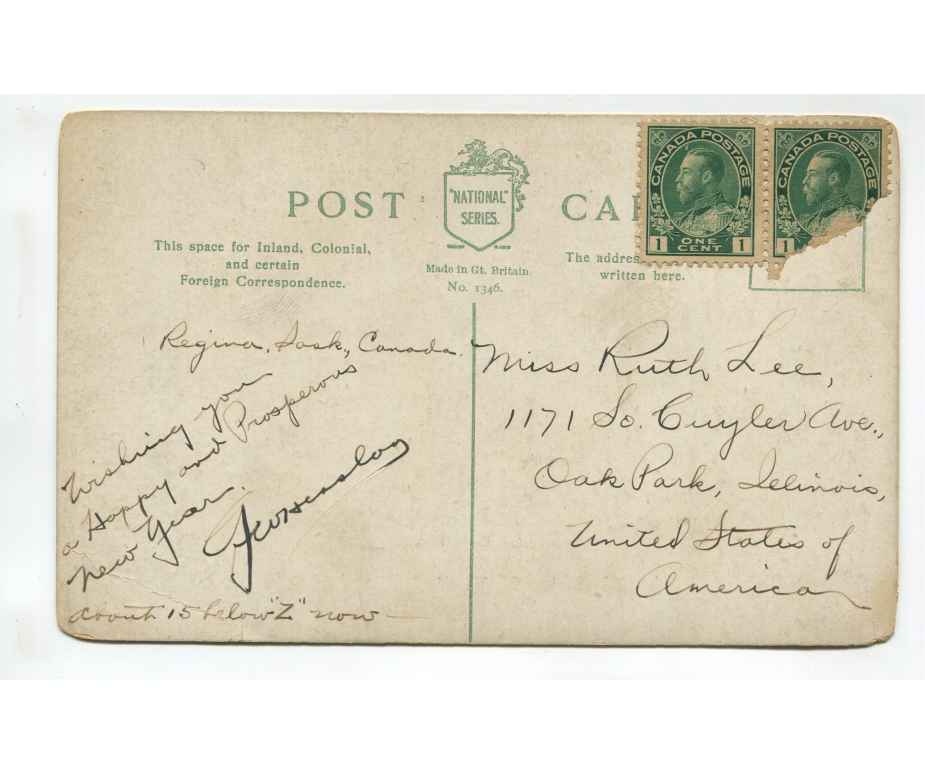 POST CA
"NATIONAL"
SERIES.
This space for Inland, Colonial,
and certain
Foreign Correspondence.
Made in Gt. Britain
No. 1346.
The addres
written here.
CANADA POSTAGE
1 ONE CENT 1
CANADA POSTAGE
1
Regina, Sask., Canada.
Wishing you
a Happy and Prosperous
New Year.
about 15 below "Z" now
Miss Ruth Lee,
1171 So. Cuyler Ave.,
Oak Park, Illinois,
United States of
America